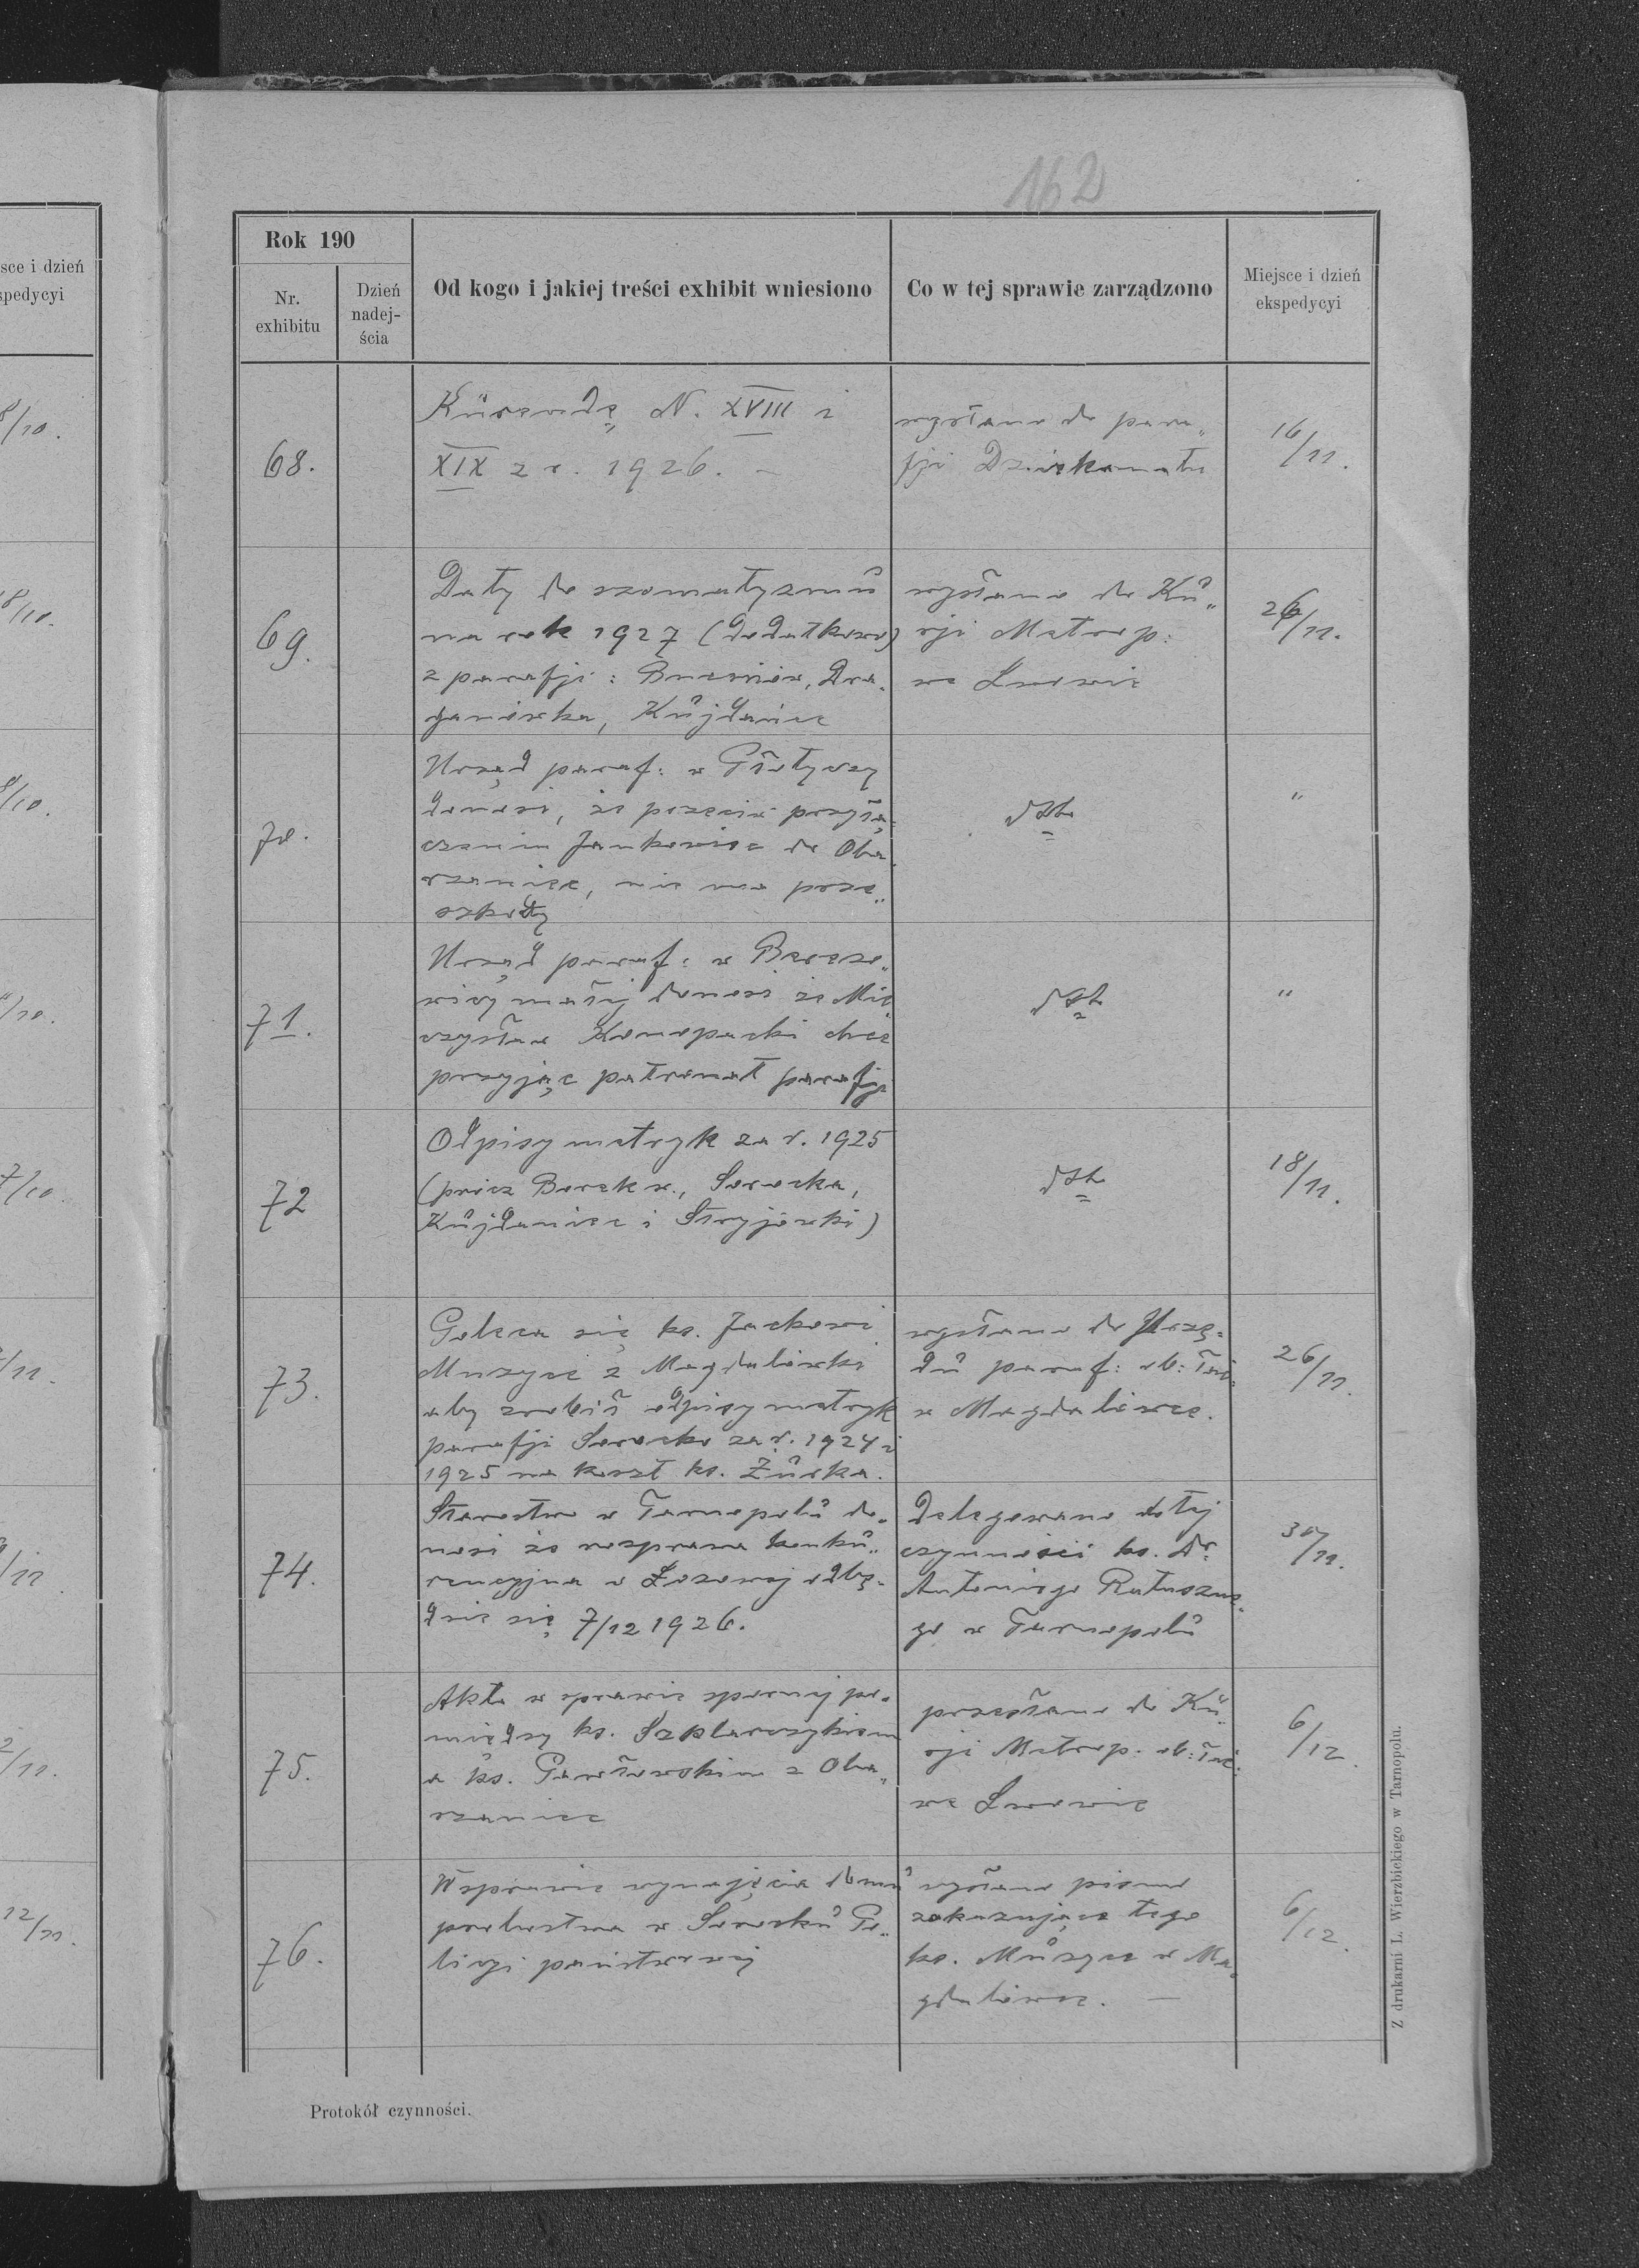 162
sce i dzień
spedycyi
Rok 190
Nr.
exhibitu
Dzień
nadej-
ścia
Od kogo i jakiej treści exhibit wniesiono
Co w tej sprawie zarządzono
Miejsce i dzień
ekspedycyi
68.
Kurendę N. XVIII i
XIX z r. 1926. -
wysłano do para„
fji Dziekanatu
16/11.
69.
Daty do szematyzmu
na rok 1927 (dodatkowo)
z parafji: Bucniów, Dra„
ganówka, Kujdańce
wysłano do Ku„
rji Metrop:
we Lwowie
26/11.
70.
Urząd paraf: w Płotyczy
donosi, że przeciw przyłą„
czeniu Jankowiec do Oba„
rzaniec, nie ma prze„
szkody
dtto
"
71.
Urząd paraf: w Berezo„
wicy małej donosi że Mie„
czysław Konopacki chce
przyjąć patronat parafji
dtto
"
72
Odpisy metryk za r. 1925
(prócz Berek w., Sorocka,
Kujdaniec i Stryjówki)
dtto
18/11.
73.
Poleca się ks. Jackowi
Muszyce z Magdalówki
aby zrobił odpisy metryk
parafji Sorocko za r. 1924 i
1925 na koszt ks. Żurka.
wysłano do Urzę„
du paraf: ob: łać:
w Magdalówce.
26/11.
74.
Starostwo w Tarnopolu do„
nosi że rozprawa konku„
rencyjna w Łozowej odbę„
dzie się 7/12 1926.
Delegowano do tej
czynności ks. Dr.
Antoniego Ratuszne„
go w Tarnopolu
30/11.
75.
Akta w sprawie spornej po„
między ks. Szklarczykiem
a ks. Pawłowskim z Oba„
rzaniec
przesłano do Ku„
rji Metrop. ob: łać:
we Lwowie
6/12
76.
W sprawie wynajęcia domu
probostwa w Sorocku Po„
licji państwowej
wysłano pismo
zakazujące tego
ks. Muszyce w Ma„
gdalówce. —
6/12.
Protokół czynności.
Z drukarni L. Wierzbickiego w Tarnopolu.